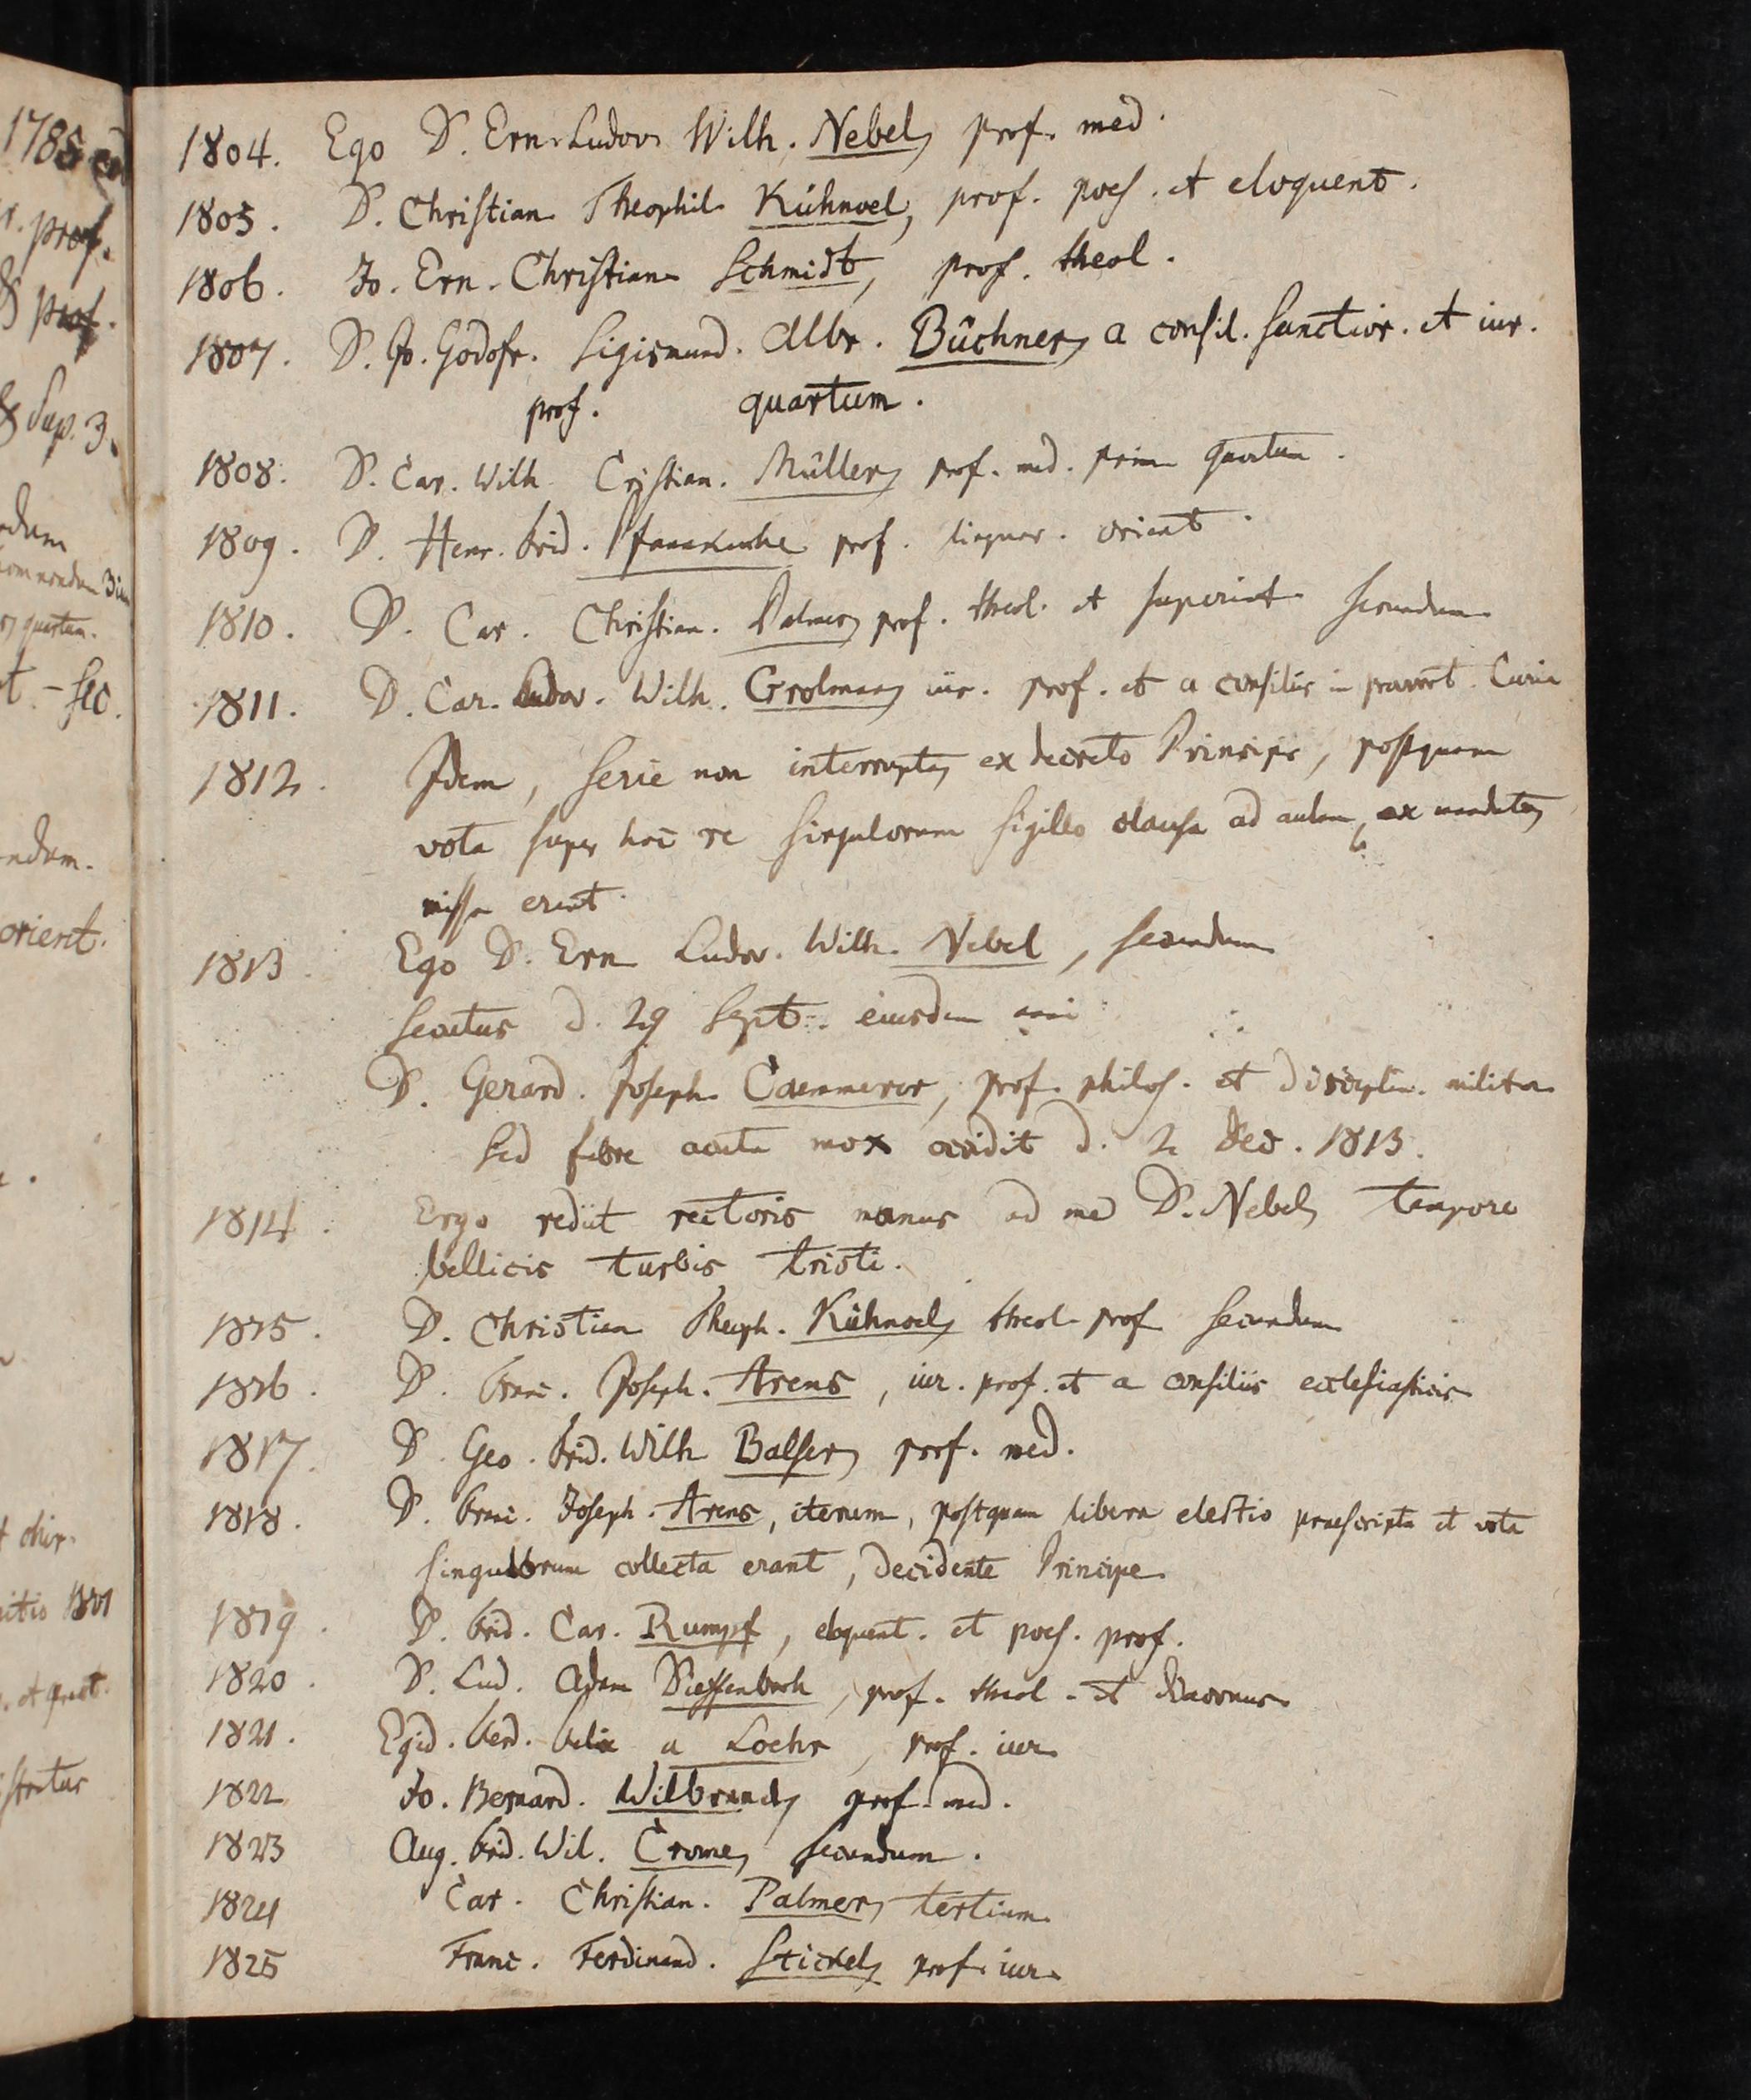 1785
r. prof.
& prof.
& Sup. 3.
ndum
quartum.
t. - sec.
ndum.
orient.
t chir.
itio 1801
stratus
1804. Ego D. Ern. Ludov. Wilh. Nebel, prof. med.
1805. D. Christian Theophil. Kühnoel, prof. poes. et eloquent.
1806. Jo. Ern. Christian Schmidt, prof. theol.
1807. D. Jo. Godofr. Sigismund. Albr. Büchner, a consil. sanctior. et iur.
prof. quartum.
1808. D. Car. Wilh. Cristian. Müller, prof. med. prim quartum.
1809. D. Henr. Frid. Pfannkuche prof. linguar. orient.
1810. D. Car. Christian. Palmer, prof. theol. et superint. secundum
1811. D. Car. Ludov. Wilh. Grolman, iur. prof. et a consiliis in Curia
1812. Idem, serie non interrupta, ex decreto Principis, postquam
vota super hac re singulorum sigillo clausa ad aulam, ex mandato,
missa erant.
1813. Ego D. Ern Ludov. Wilh. Nebel, secundum
d. 29 Sept. eiusdem anni
D. Gerard. Joseph. Caemmerer, prof. philos. et disciplin. militar.
sed febre acuta mox occidit d. 2 Dec. 1813.
1814. Ergo rediit rectoris munus ad me D. Nebel, tempore
bellicis turbis tristi.
1815. D. Christian Theoph. Kühnoel, theol. prof secundum
1816. D. Franc. Joseph. Arens, iur. prof. et a consiliis ecclesiasticis
1817. D. Geo. Frid. Wilh Balser, prof. med.
1818. D. Franc. Joseph. Arens, iterum, postquam libera electio praescripta et vota
singulorum collecta erant, decidente Principe
1819. D. Frid. Car. Rumpf, eloquent. et poes. prof.
1820. D. Lud. Adam Dieffenbach, prof. theol. et diaconus
1821. Egid. Ferd. Felix a Loehr, prof. iur.
1822 Jo. Bernard. Wilbrand, prof. med.
1823 Aug. Frid. Wil. Crome, secundum.
1824 Car. Christian. Palmer, tertium
1825 Franc. Ferdinand. Stickel, prof. iur.